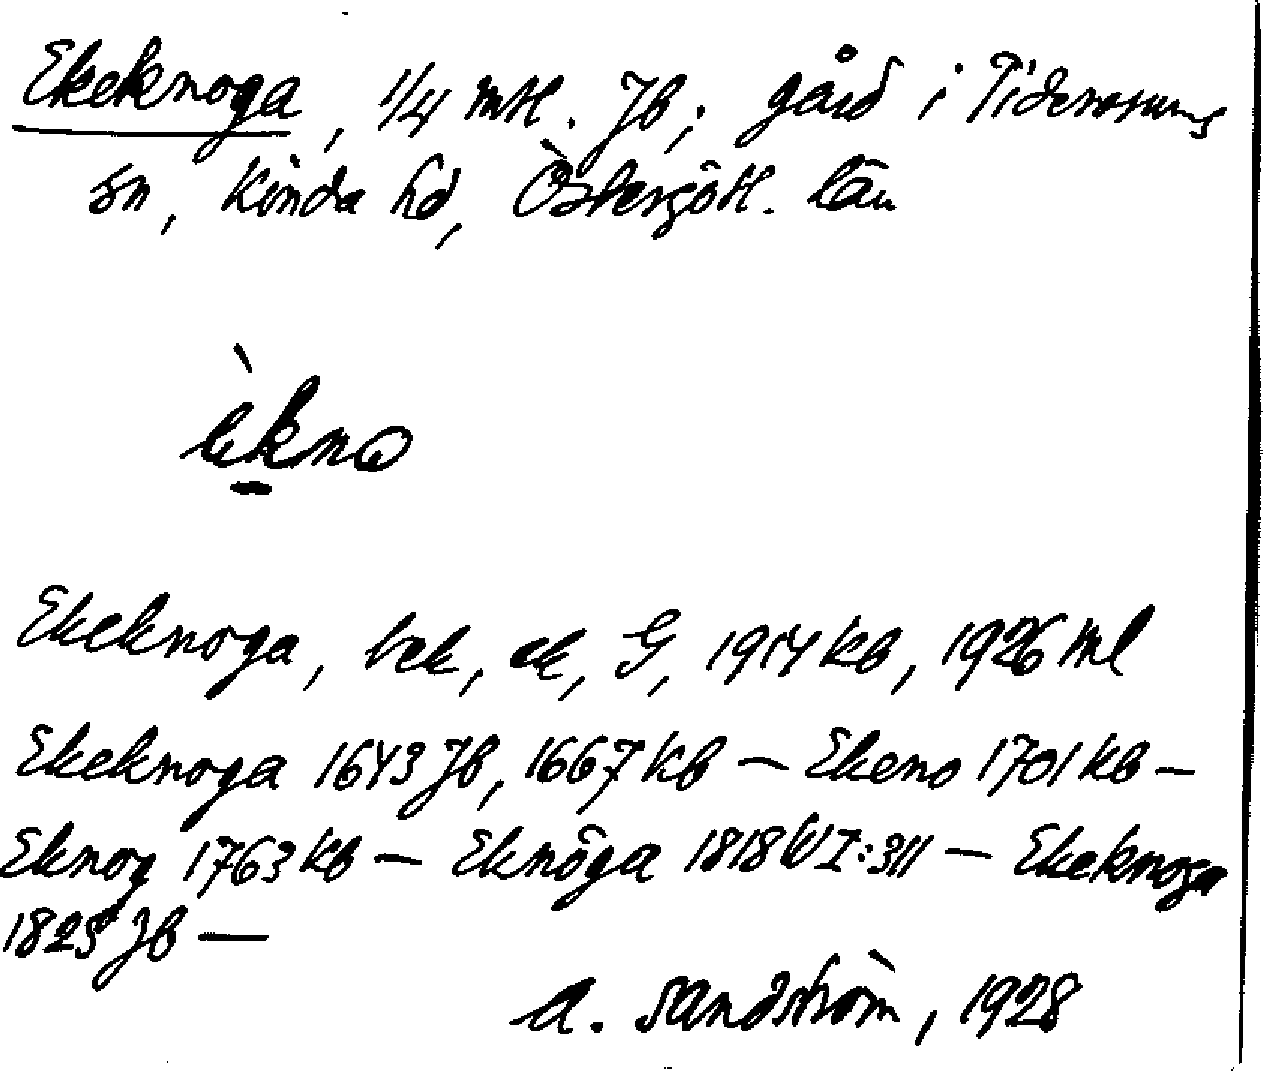 Ekeknoga, 1/4 mtl. Jb; gård i Tidersrums
sn, Kinda hd, Östergötl. län
èkno
Ekeknoga, bek, ek, G, 1914 Kb, 1926 Ml
Ekeknoga 1643 Jb, 1667 Kb — Ekeno 1701 Kb —
Eknog 1763 Kb — Eknöga 1818 W I:311 — Ekeknoga
1825 Jb —
A. Sandström, 1928